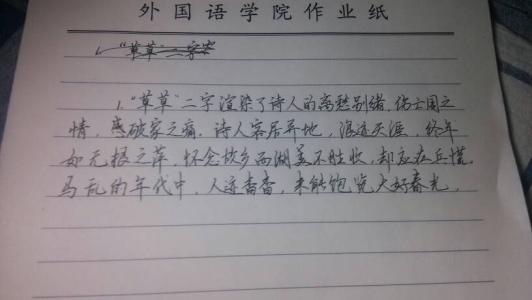 外国语学院作业纸
1. "草草"二字
1. "草草"二字渲染了诗人的离愁别绪、伤亡国之
情,感破家之痛。诗人客居异地,浪迹天涯,终年
如无根之萍,怀念故乡西湖美不胜收,却应在兵慌
马乱的年代中,人迹杳杳,未能饱览大好春光,